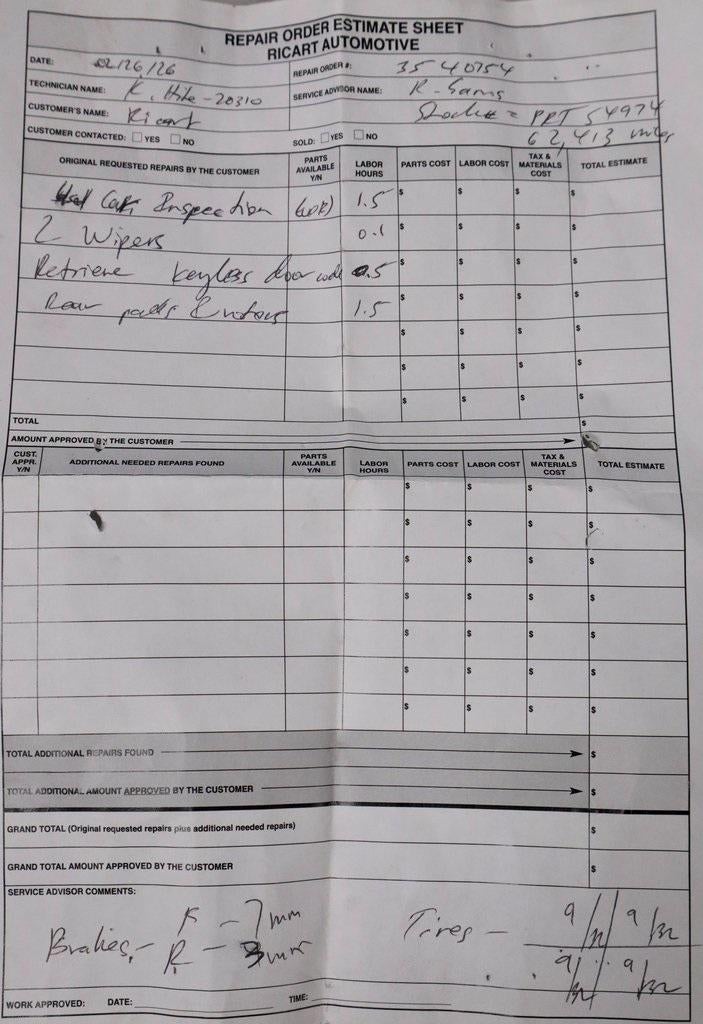 REPAIR ORDER ESTIMATE SHEET
RICART AUTOMOTIVE
DATE: 02/26/26
REPAIR ORDER #: 3540754
TECHNICIAN NAME: K. Hite - 20310
SERVICE ADVISOR NAME: R - Sams
CUSTOMER'S NAME: Ricart
Stock# = PPT 54974
CUSTOMER CONTACTED: YES NO
SOLD: YES NO
62,413 miles
ORIGINAL REQUESTED REPAIRS BY THE CUSTOMER PARTS AVAILABLE Y/N LABOR HOURS PARTS COST LABOR COST TAX & MATERIALS COST TOTAL ESTIMATE
Used Car Inspection 1.5 $ $ $ $
2 Wipers 0.1 $ $ $ $
Retrieve keyless door code 0.5 $ $ $ $
Rear pads & rotors 1.5 $ $ $ $
$ $ $ $
$ $ $ $
$ $ $ $
TOTAL $
AMOUNT APPROVED BY THE CUSTOMER
CUST. APPR. Y/N ADDITIONAL NEEDED REPAIRS FOUND PARTS AVAILABLE Y/N LABOR HOURS PARTS COST LABOR COST TAX & MATERIALS COST TOTAL ESTIMATE
$ $ $ $
$ $ $ $
$ $ $ $
$ $ $ $
$ $ $ $
$ $ $ $
$ $ $ $
TOTAL ADDITIONAL REPAIRS FOUND $
TOTAL ADDITIONAL AMOUNT APPROVED BY THE CUSTOMER $
GRAND TOTAL (Original requested repairs plus additional needed repairs) $
GRAND TOTAL AMOUNT APPROVED BY THE CUSTOMER $
SERVICE ADVISOR COMMENTS:
Brakes - F - 7mm
R - 3mm
Tires - 9/32 9/32
9/32 9/32
WORK APPROVED: DATE: TIME: